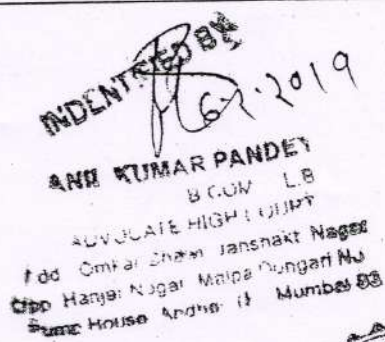 INDENTIFIED BY
6.2.2019
ANIL KUMAR PANDEY
B COM L.B
ADVOCATE HIGH COURT
Add Omkar Chawl Jansnakt Nagar
Opp Hanjer Nagar Malpa Dungari No
Pump House Andheri Mumbai 93